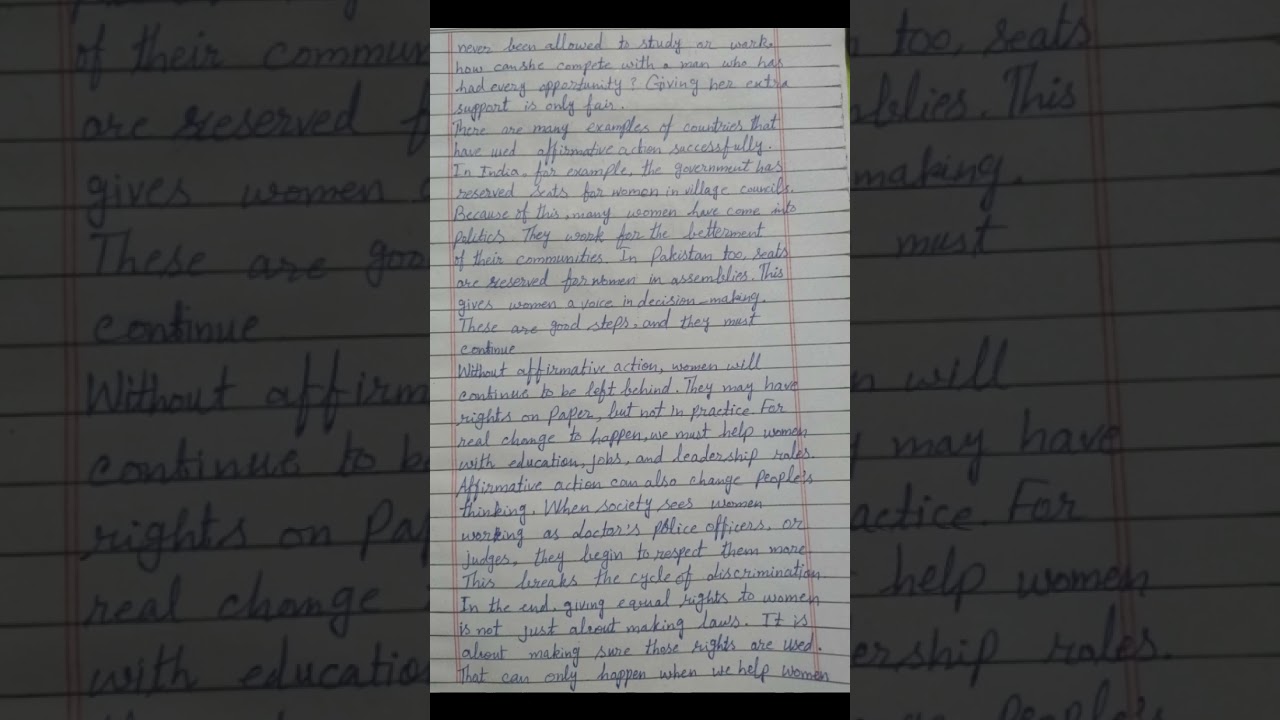 never been allowed to study or work.
how can she compete with a man who has
had every opportunity? Giving her extra
support is only fair.
There are many examples of countries that
have used affirmative action successfully.
In India, for example, the government has
reserved seats for women in village councils.
Because of this, many women have come into
politics. They work for the betterment
of their communities. In Pakistan too, seats
are reserved for women in assemblies. This
gives women a voice in decision-making.
These are good steps, and they must
continue
Without affirmative action, women will
continue to be left behind. They may have
rights on paper, but not in practice. For
real change to happen, we must help women
with education, jobs, and leadership roles.
Affirmative action can also change people's
thinking. When society sees women
working as doctor's police officers, or
judges, they begin to respect them more.
This breaks the cycle of discrimination.
In the end, giving equal rights to women
is not just about making laws. It is
about making sure those rights are used.
That can only happen when we help women